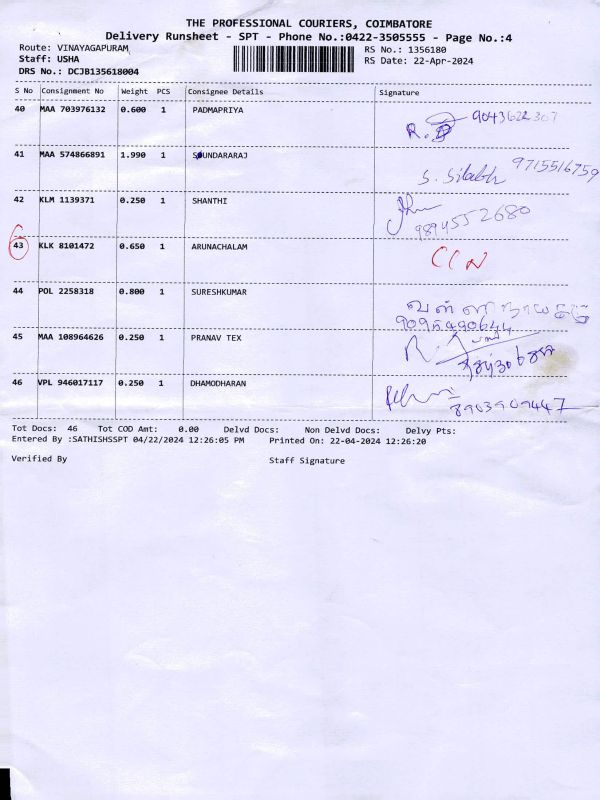 THE PROFESSIONAL COURIERS, COIMBATORE
Delivery Runsheet - SPT - Phone No.:0422-3505555 - Page No.:4
Route: VINAYAGAPURAM
RS No.: 1356180
Staff: USHA
RS Date: 22-Apr-2024
DRS No.: DCJB135618004
S No Consignment No Weight PCS Consignee Details Signature
40 MAA 703976132 0.600 1 PADMAPRIYA
9043622307
41 MAA 574866891 1.990 1 SOUNDARARAJ
9715516759
42 KLM 1139371 0.250 1 SHANTHI
9894552680
43 KLK 8101472 0.650 1 ARUNACHALAM
44 POL 2258318 0.800 1 SURESHKUMAR
45 MAA 108964626 0.250 1 PRANAV TEX
46 VPL 946017117 0.250 1 DHAMODHARAN
8903909447
Tot Docs: 46 Tot COD Amt: 0.00 Delvd Docs: Non Delvd Docs: Delvy Pts:
Entered By :SATHISHSSPT 04/22/2024 12:26:05 PM Printed On: 22-04-2024 12:26:20
Verified By Staff Signature